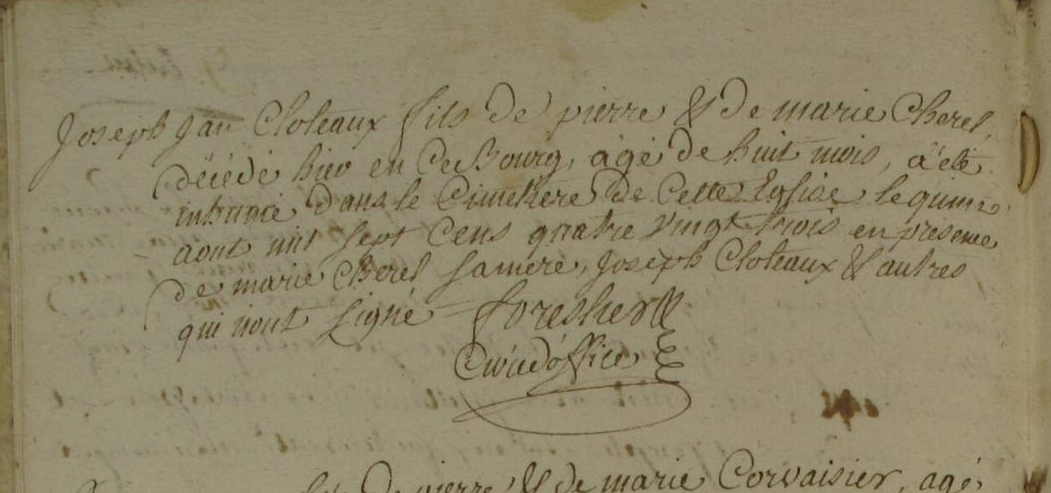 Joseph Jan Cloteaux fils de pierre & de marie Cherel,
décédé hier en Ce Bourg, agé de huit mois, a été
inhumé dans le Cimetiere de Cette Eglise le quinze
aout mil sept Cens quatre vingt trois en presence
de marie Cherel sa mère, Joseph Cloteaux & autres
qui n'ont signé Foreshier
Curé d'office
de pierre & de marie Corvaisier, agé